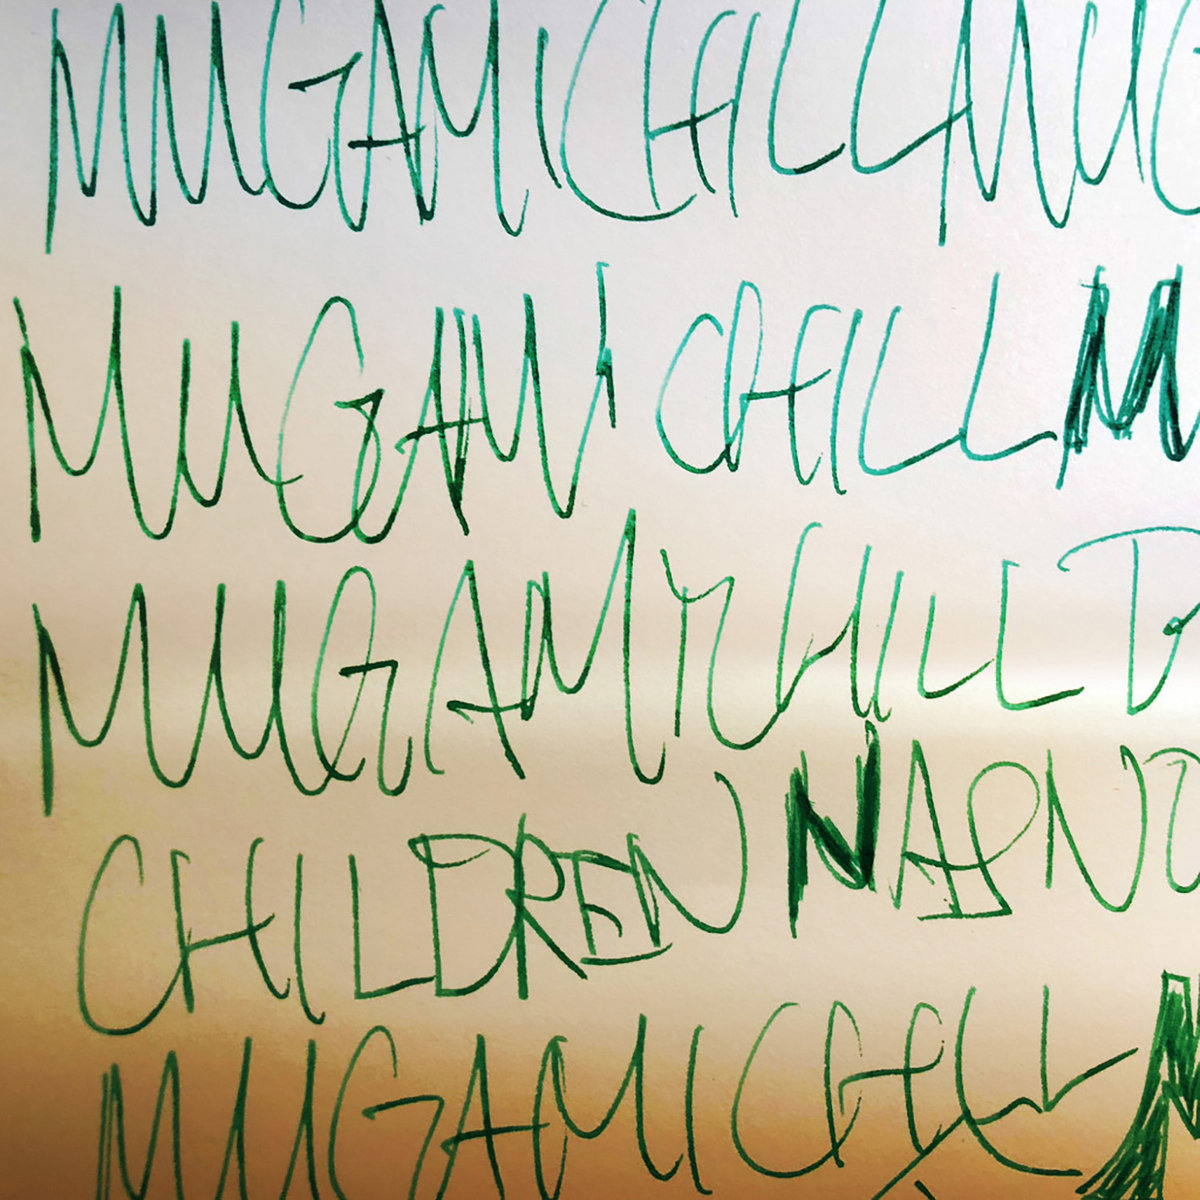 MUGAMICHILLMUG
MUGAMI CHILL M
MUGAMYCHILL
CHILDREN
MUGAMICHILL